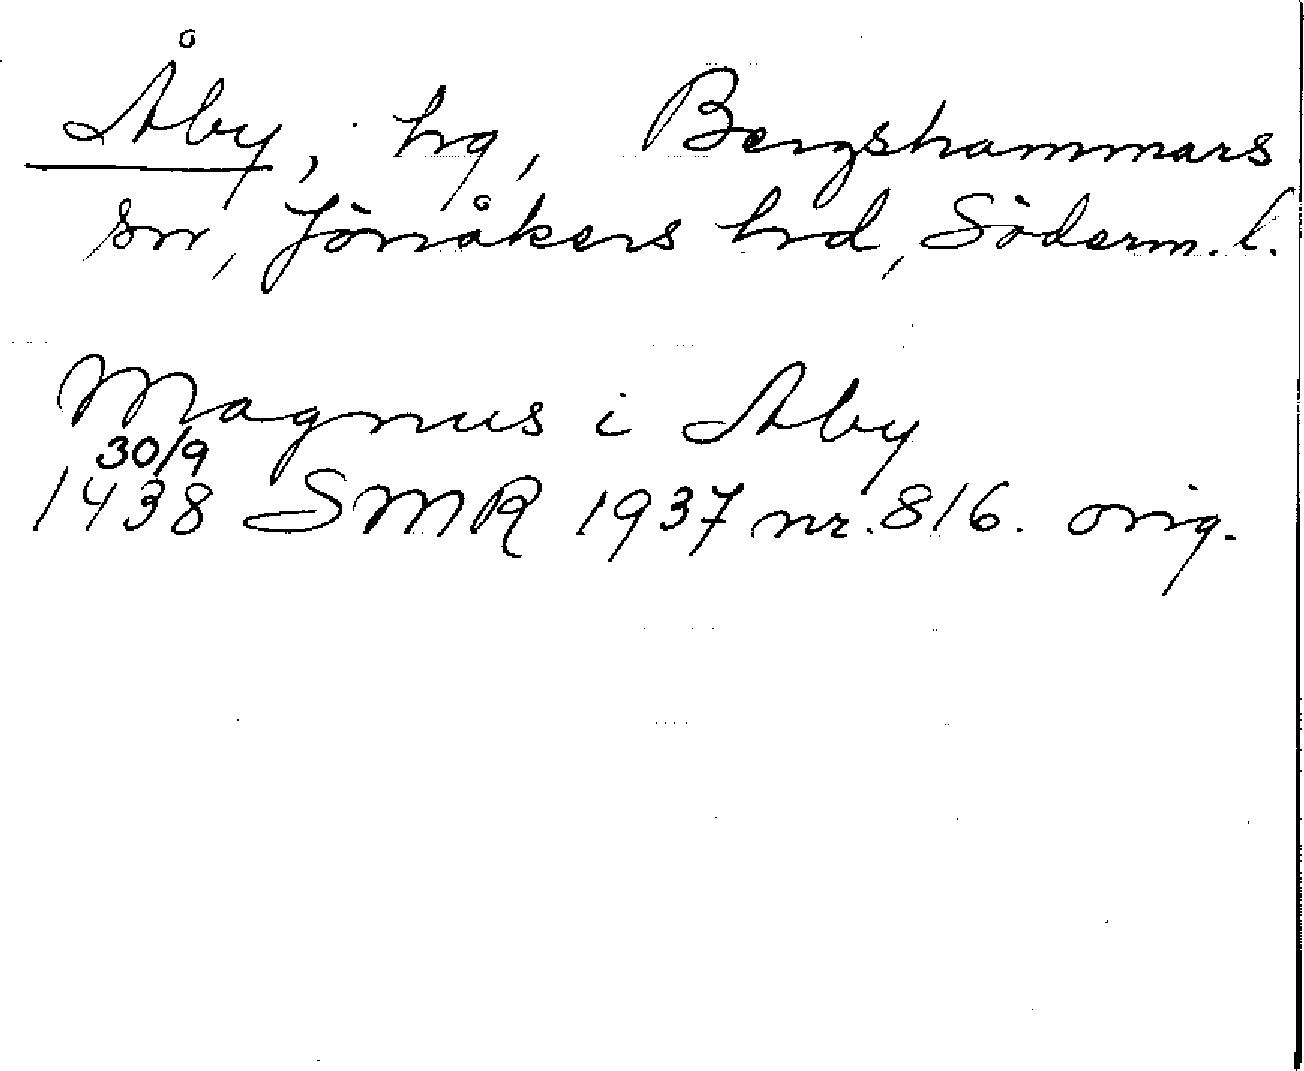 Åby, hg, Bergshammars
sn, Jönåkers hrd, Söderm. l.
Magnus i Aby
30/9
1438 SMR 1937 nr. 816. orig.